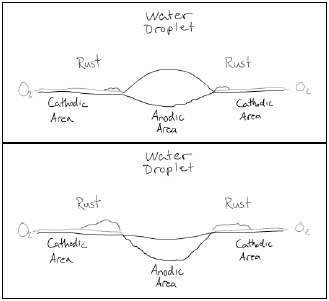 Water
Droplet
Rust
Rust
O2
O2
Cathodic
Area
Anodic
Area
Cathodic
Area
Water
Droplet
Rust
Rust
O2
O2
Cathodic
Area
Anodic
Area
Cathodic
Area